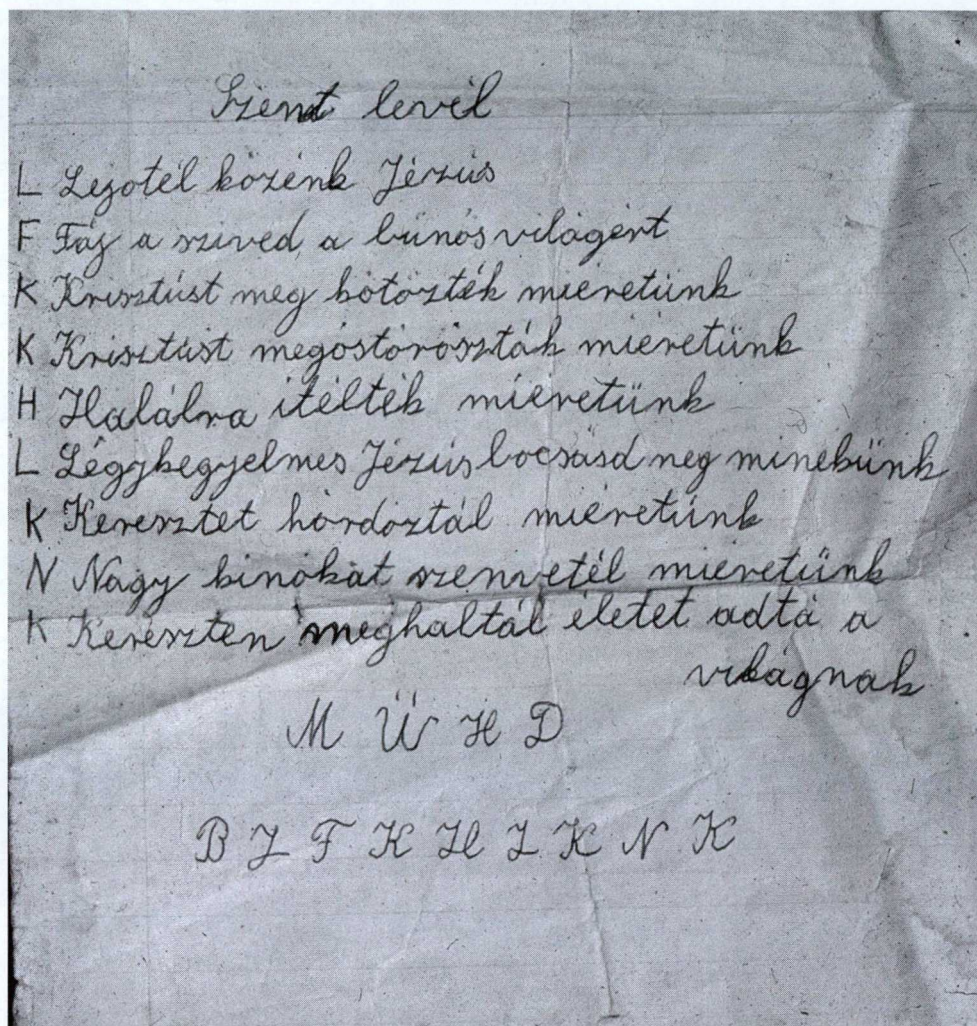 Szent levél
L Lejotél közénk Jézús
F Fáj a szived a búnós világért
K Krisztúst meg kötözték miéretünk
K Krisztúst megóstórószták miéretünk
H Halálra itélték miéretünk
L Légykegyelmes Jézús bocsásd neg minebünk
K Keresztet hórdóztál miéretúnk
N Nagy kinókat szenvetél miéretünk
K Kereszten meghaltál életet adtá a
világnak
M Ü H D
B L F K H L K N K